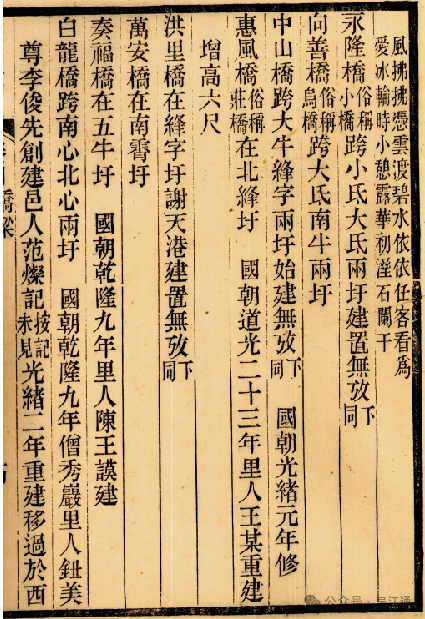 風拂拂憑雲渡碧水依依任客看爲
愛冰輪時小憩露華初溼石闌干
永隆橋俗稱小橋跨小氐大氐兩圩建置無攷下同
向善橋俗稱烏橋跨大氐南牛兩圩
中山橋跨大牛縫字兩圩始建無攷下同　國朝光緒元年修
惠風橋俗稱莊橋在北縫圩　國朝道光二十三年里人王某重建
增高六尺
洪里橋在縫字圩謝天港建置無攷下同
萬安橋在南霄圩
奏福橋在五牛圩　國朝乾隆九年里人陳王謨建
白龍橋跨南心北心兩圩　國朝乾隆九年僧秀巖里人鈕美
尊李俊先創建邑人范燦記按記未見光緒二年重建移過於西
橋梁
公众号·吴江通